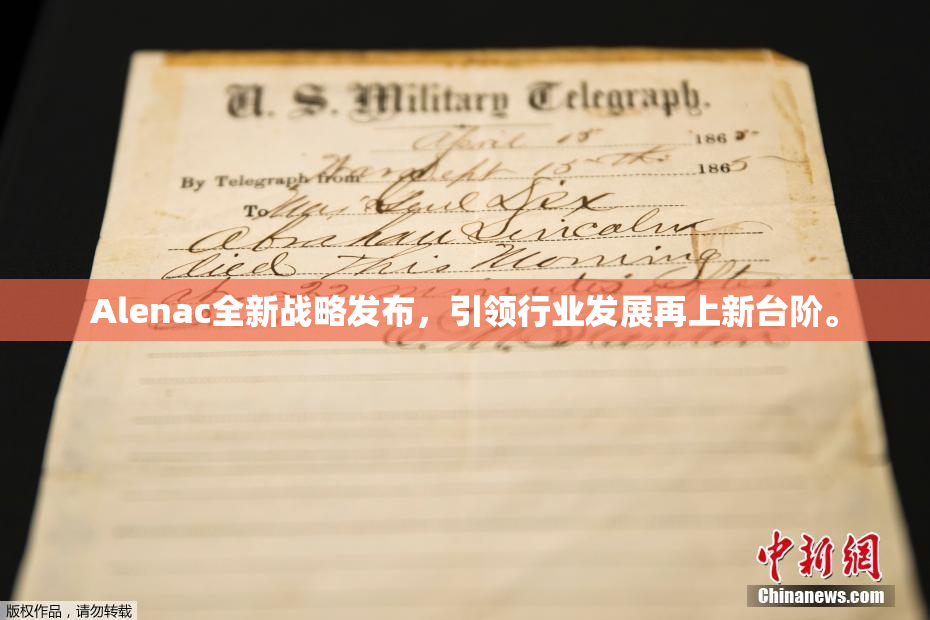 U. S. Military Telegraph.
April 15 1865
By Telegraph from War Dept 15th 1865
To Maj Genl Dix
Abraham Lincoln
died This Morning
at 22 minutes after
Alenac全新战略发布，引领行业发展再上新台阶。
E. M. Stanton
中新网
Chinanews.com
版权作品，请勿转载